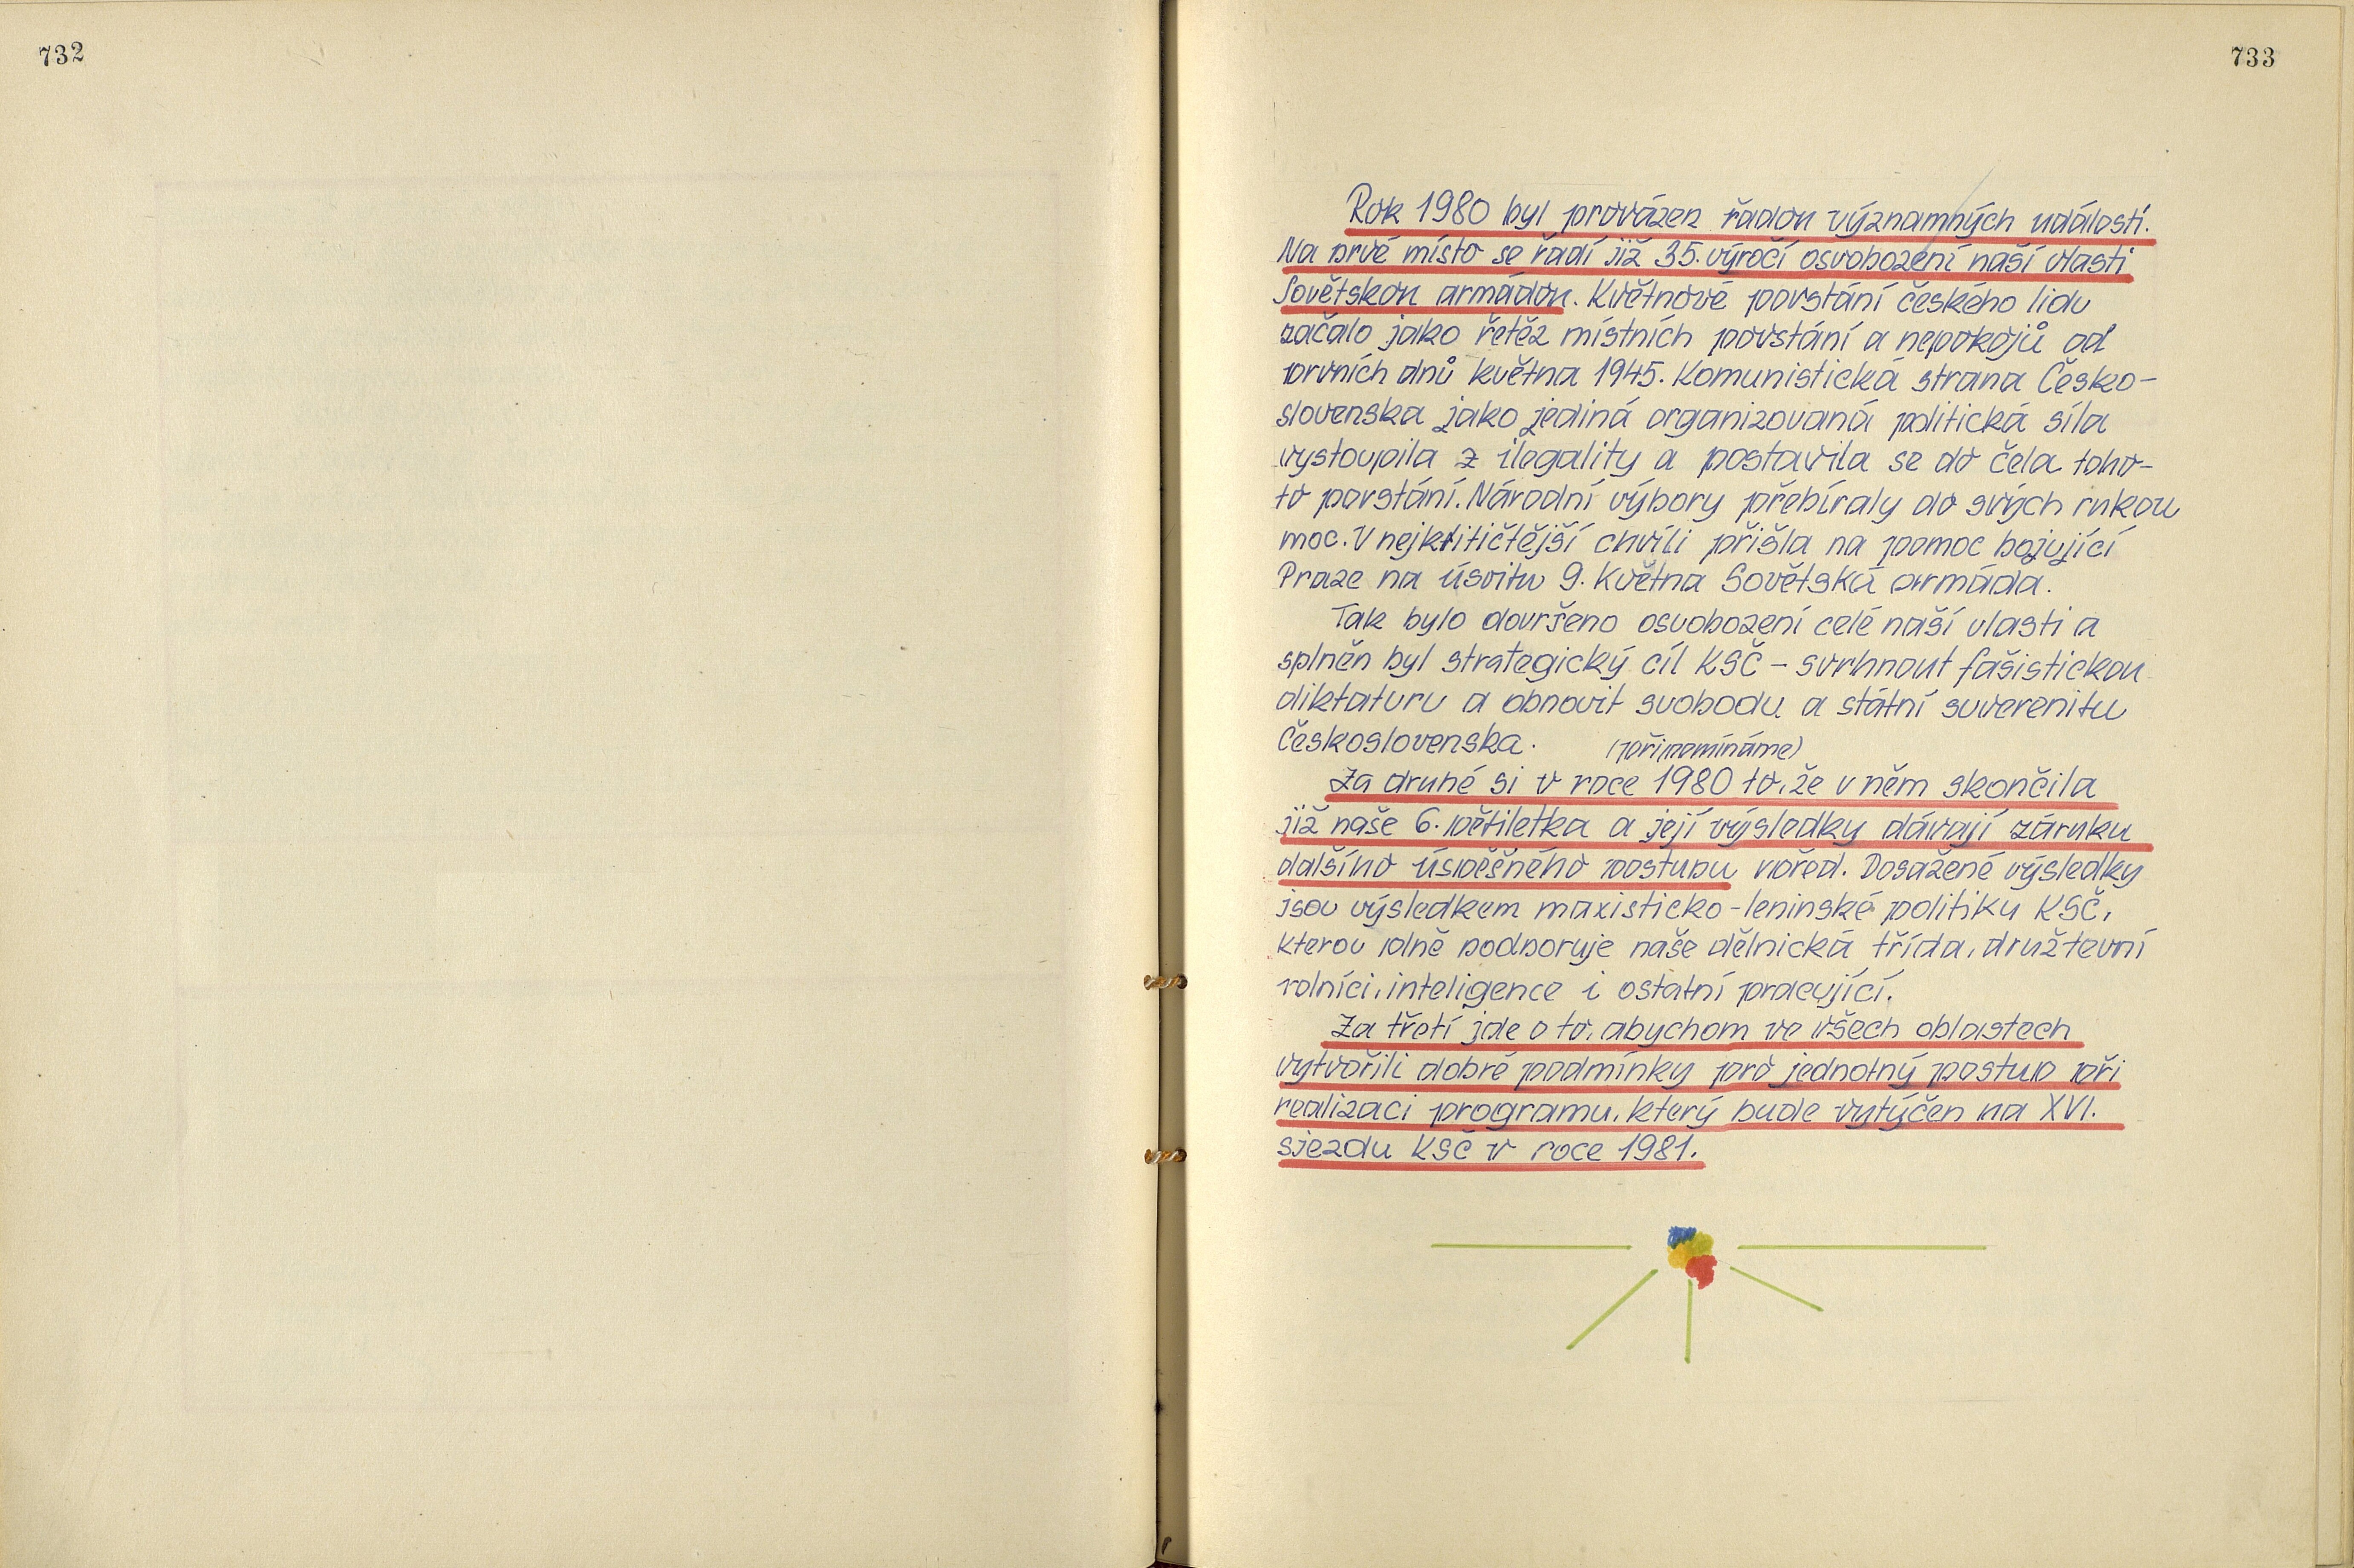 732
733
Rok 1980 byl provázen řadou významných událostí.
Na prvé místo se řadí již 35. výročí osvobození naší vlasti
Sovětskou armádou. Květnové povstání českého lidu
začalo jako řetěz místních povstání a nepokojů od
prvních dnů května 1945. Komunistická strana Česko-
slovenska jako jediná organizovaná politická síla
vystoupila z ilegality a postavila se do čela toho-
to povstání. Národní výbory přebíraly do svých rukou
moc. V nejkritičtější chvíli přišla na pomoc bojující
Praze na úsvitu 9. května Sovětská armáda.
Tak bylo dovršeno osvobození celé naší vlasti a
splněn byl strategický cíl KSČ - svrhnout fašistickou
diktaturu a obnovit svobodu a státní suverenitu
Československa.
(připomínáme)
Za druhé si v roce 1980 to, že v něm skončila
již naše 6. pětiletka a její výsledky dávají záruku
dalšího úspěšného postupu vpřed. Dosažené výsledky
jsou výsledkem maxisticko-leninské politiky KSČ,
kterou plně podporuje naše dělnická třída, družtevní
rolníci, inteligence i ostatní pracující.
Za třetí jde o to, abychom ve všech oblastech
vytvořili dobré podmínky pro jednotný postup při
realizaci programu, který bude vytýčen na XVI.
sjezdu KSČ v roce 1981.